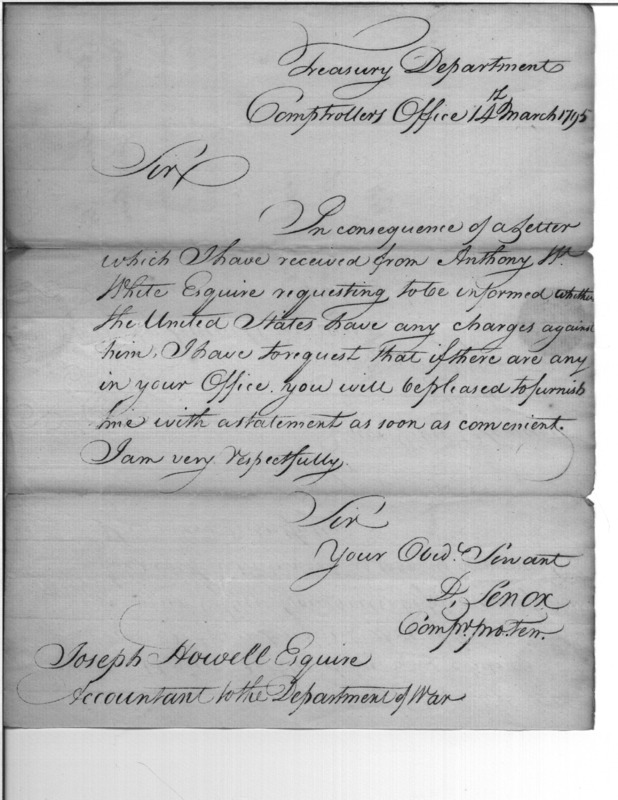 Treasury Department
Comptrollers Office 14th March 1795
Sir
In consequence of a Letter
which I have received from Anthony W.
White Esquire requesting to be informed whether
the United States have any charges against
him, I have to request that if there are any
in your Office you will be pleased to furnish
me with a statement as soon as convenient.
I am very respectfully.
Sir
Your Obedt. Servant
D. Lenox
Compr. pro. tem.
Joseph Howell Esquire
Accountant to the Department of War